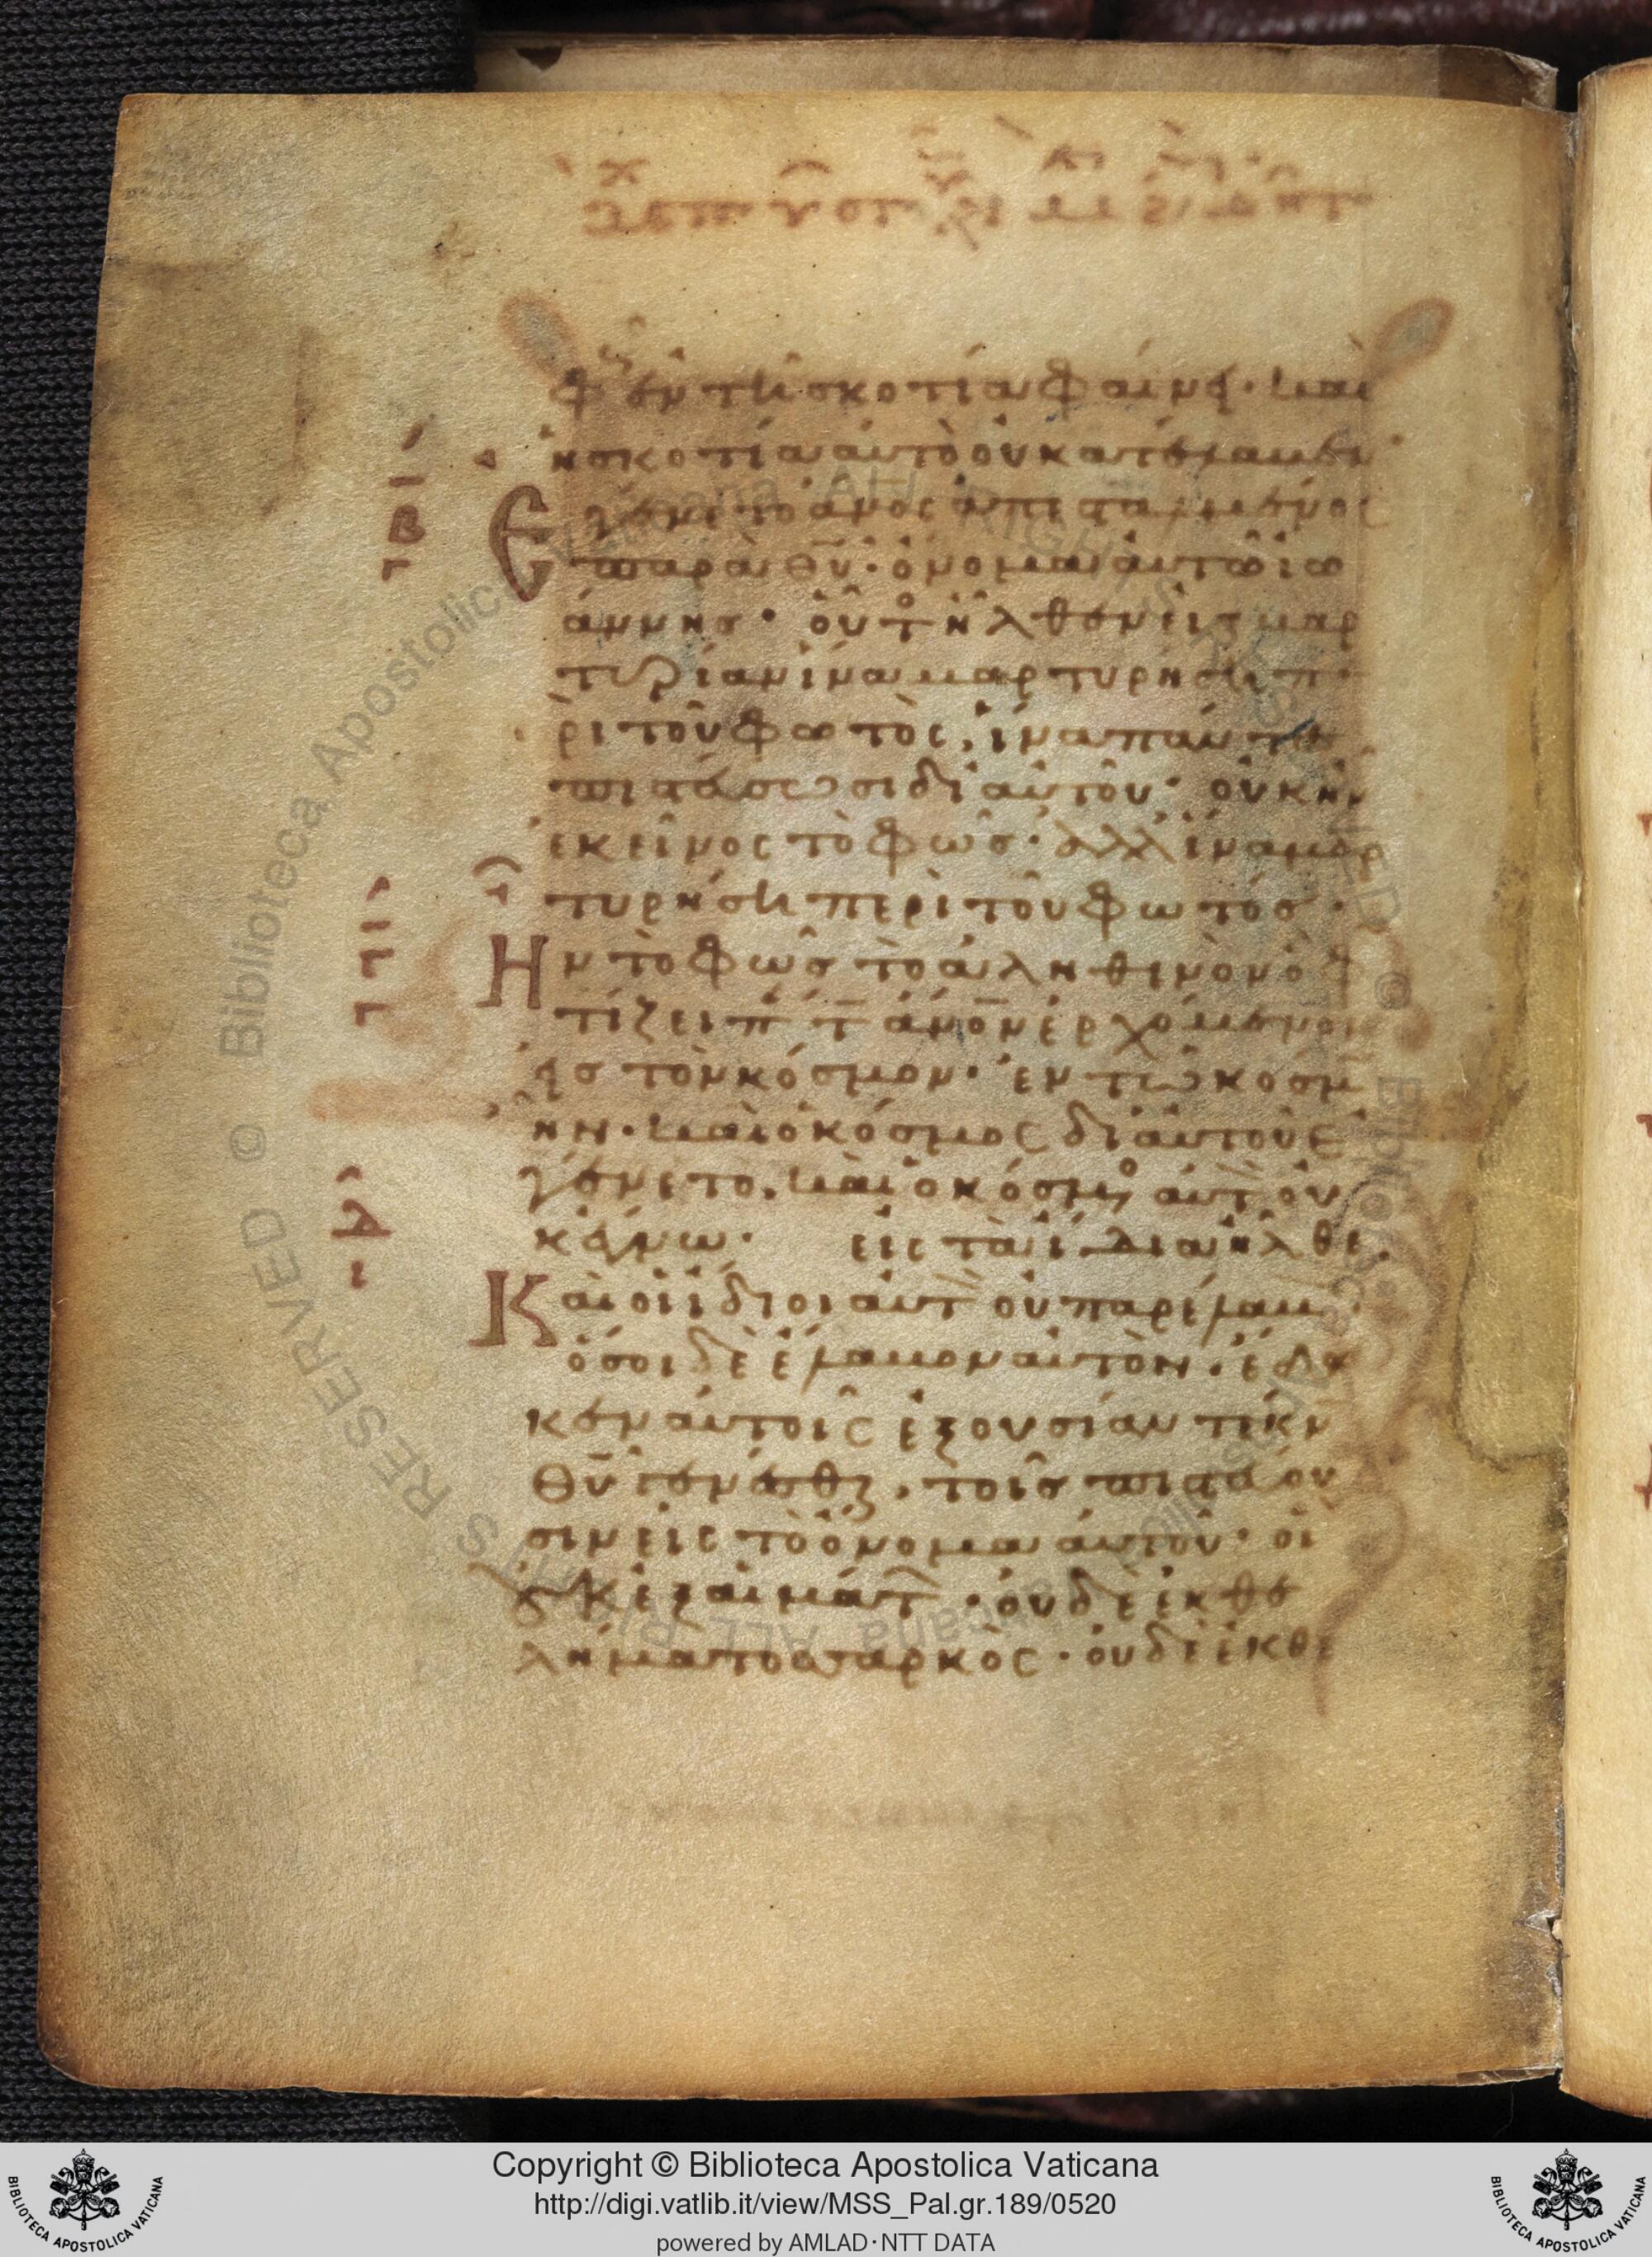 φῶς ἐν τῆ σκοτία φαίνει· καὶ
ἡ σκοτία αὐτὸ οὐ κατέλαβεν
β
Ἐγένετο ἄνος ἀπεσταλμένος
παρὰ θυ· ὄνομα αὐτῶ ἰω
άννης· οὗτος ἦλθεν εἰς μαρ
τυρίαν ἵνα μαρτυρήση πε
ρὶ τοῦ φωτὸς, ἵνα πάντες
πιστεύσωσι δι' αὐτοῦ· οὐκ ἦν
ἐκεῖνος τὸ φῶς· ἀλλ' ἵνα μαρ
τυρήση περὶ τοῦ φωτός·
Ἦν τὸ φῶς τὸ ἀληθινὸν ὃ φω
τίζει πάντα ἄνον ἐρχόμενον
εἰς τὸν κόσμον· ἐν τῶ κόσμω
ἦν· καὶ ὁ κόσμος δι' αὐτοῦ ἐ
γένετο, καὶ ὁ κόσμος αὐτὸν οὐ
κ ἔγνω· εἰς τὰ ἴδια ἦλθε.
Καὶ οἱ ἴδιοι αὐτὸν οὐ παρέλαβον·
ὅσοι δὲ ἔλαβον αὐτὸν, ἔδω
κεν αὐτοῖς ἐξουσίαν τέκνα
θυ γενέσθαι, τοῖς πιστεύου
σιν εἰς τὸ ὄνομα αὐτοῦ· οἳ
οὐκ ἐξ αἱμάτων· οὐδὲ ἐκ θε
λήματος σαρκὸς· οὐδὲ ἐκ θε
Copyright © Biblioteca Apostolica Vaticana
http://digi.vatlib.it/view/MSS_Pal.gr.189/0520
powered by AMLAD·NTT DATA
BIBLIOTECA APOSTOLICA VATICANA
BIBLIOTECA APOSTOLICA VATICANA